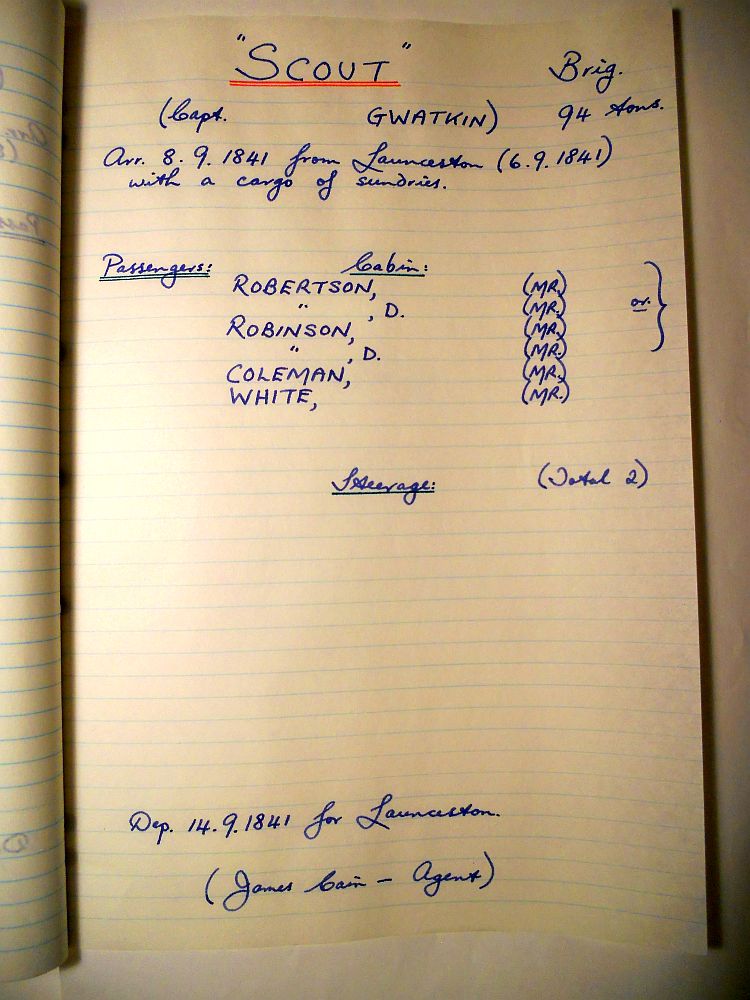 "SCOUT" Brig.
(Capt. GWATKIN) 94 tons.
Arr. 8.9.1841 from Launceston (6.9.1841)
with a cargo of sundries.
Passengers: Cabin:
ROBERTSON, (MR.)
" , D. (MR.) or. }
ROBINSON, (MR.)
" , D. (MR.)
COLEMAN, (MR.)
WHITE, (MR.)
Steerage: (Total 2)
Dep. 14.9.1841 for Launceston.
(James Cain - Agent)